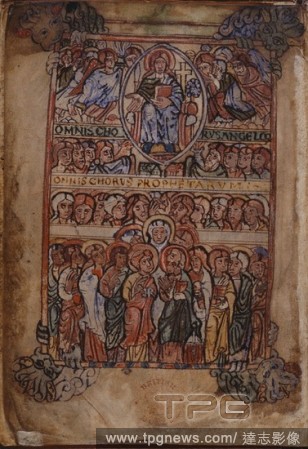 OMNIS CHO RUS ANGELO
OMNIS CHORUS PROPHETARUM
TPG
www.tpgnews.com/ 達志影像